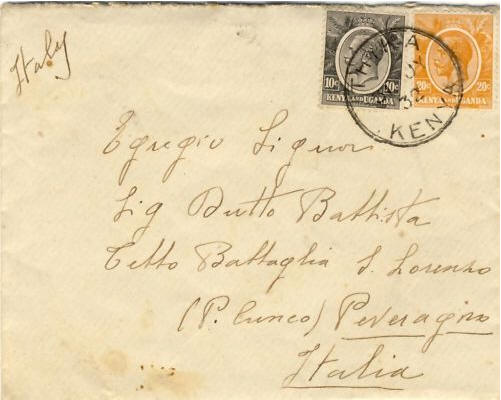 Italy
10c 10c
KENYA AND UGANDA
20c 20c
KENYA AND UGANDA
THIKA
32
KENYA
Egregio Signor
Sig Dutto Battista
Tetto Battaglia S. Lorenzo
(P. Cuneo) Peveragno
Italia